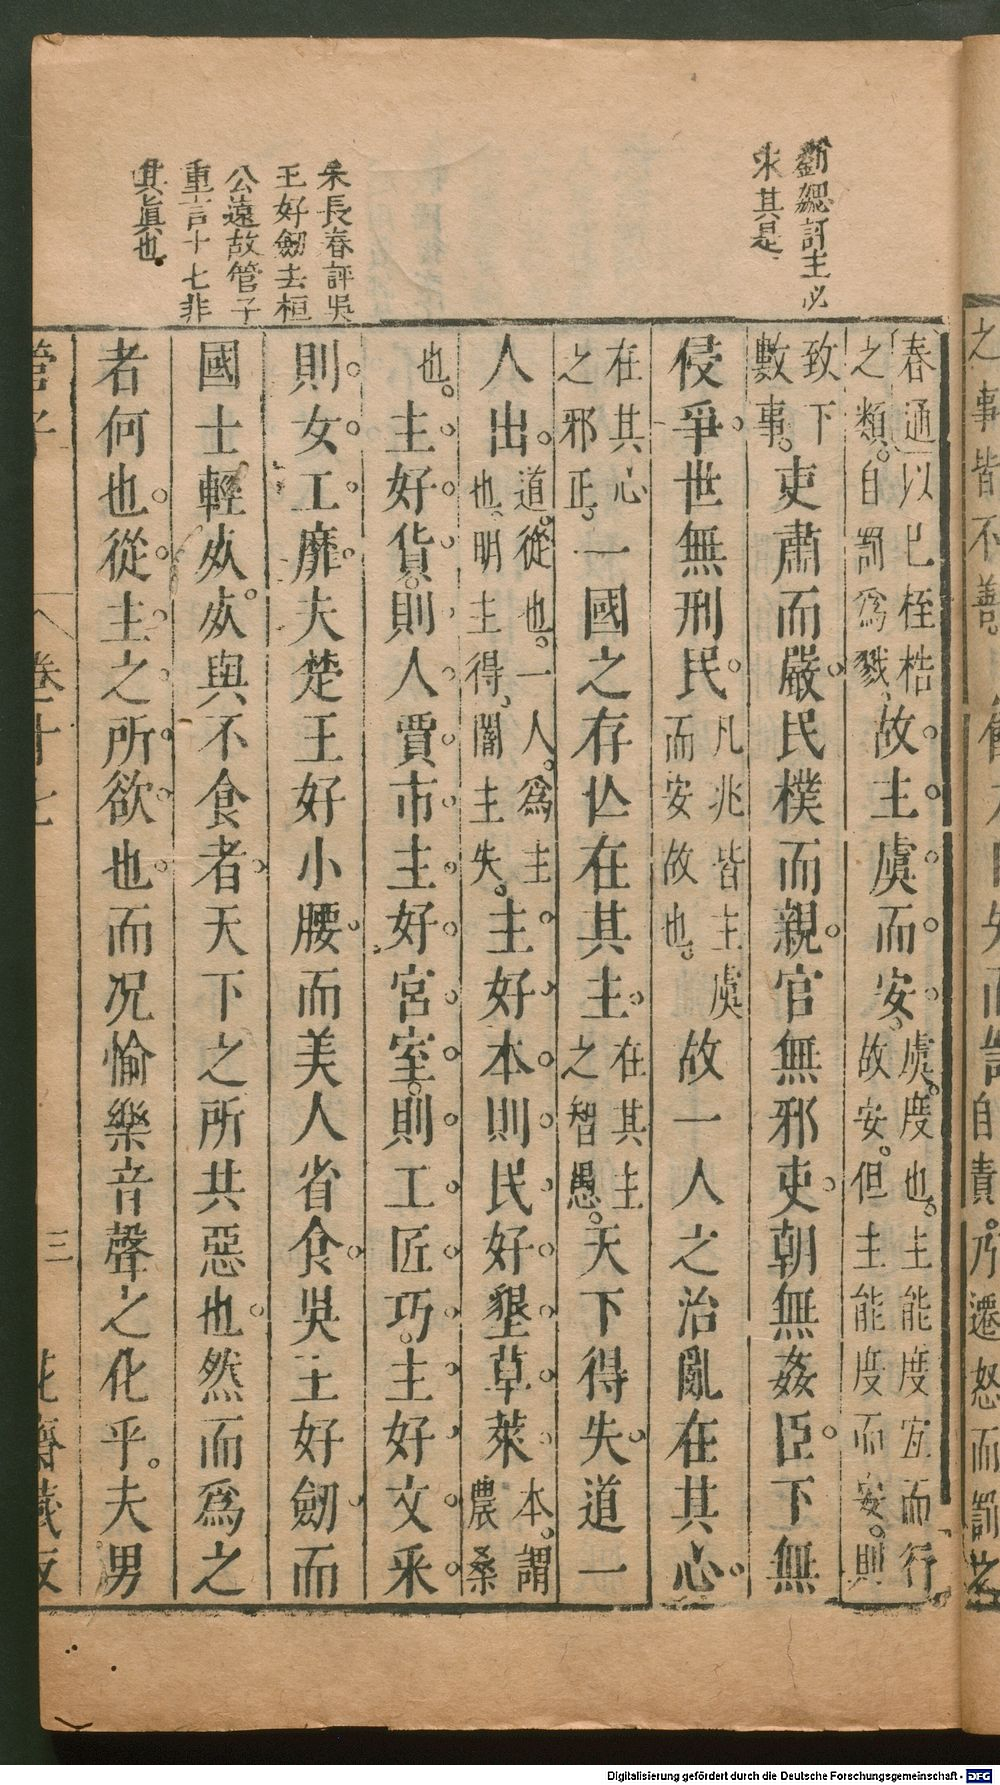 劉勰訂主必
求其是
朱長春評吳
王好劒去桓
公遠故管子
重言十七非
其眞也
春通以已桎梏
之類。自罰爲戮。
故主虞而安。
虞。度也。主能度宜而行
故安。但主能度而安。則
致下
數事。
吏肅而嚴民樸而親官無邪吏朝無姦臣下無
侵爭世無刑民
凡兆皆主虞
而安故也。
故一人之治亂在其心
在其心
之邪正。
一國之存亾在其主
在其主
之智愚。
天下得失道一
人出
道。從也。一人。爲主
也。明主得。闇主失。
主好本則民好墾草萊
本。謂
農桑
也。
主好貨。則人賈市主好宮室。則工匠巧。主好文采
則女工靡夫楚王好小腰而美人省食吳王好劒而
國士輕死。死與不食者天下之所共惡也然而爲之
者何也從主之所欲也而况愉樂音聲之化乎。夫男
管子
三
Digitalisierung gefördert durch die Deutsche Forschungsgemeinschaft - DFG